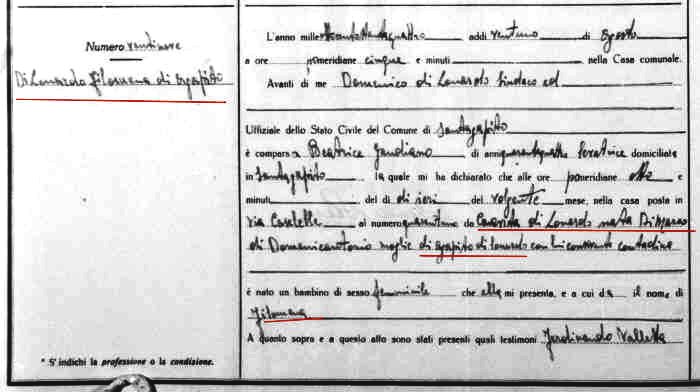 Numero ventinove
Di Lonardo Filomena di Agapito
L'anno mille addì ventuno di Agosto
a ore pomeridiane cinque e minuti nella Casa comunale.
Avanti di me Domenico di Lonardo Sindaco ed
Uffiziale dello Stato Civile del Comune di Santagapito
è comparsa Beatrice Gaudiano di anni levatrice domiciliata
in Santagapito la quale mi ha dichiarato che alle ore pomeridiane otto e
minuti del dì di ieri del volgente mese, nella casa posta in
via Caselle al numero da di Lonardo nata
di Domenicantonio moglie di Agapito di Lonardo con lui convivente contadina
è nato un bambino di sesso femminile che ella mi presenta, e a cui dà il nome di
Filomena
A quanto sopra e a questo atto sono stati presenti quali testimoni Ferdinando Valletta
* S'indichi la professione o la condizione.